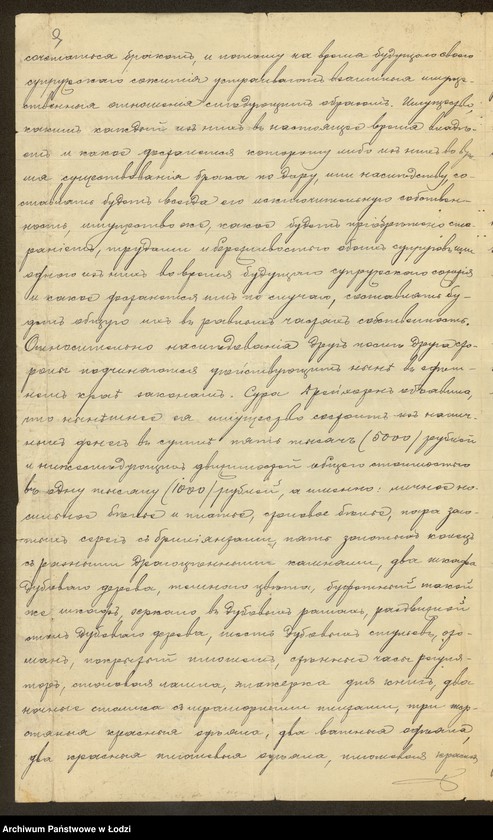 сочетаться бракомъ, и потому на время будущаго своего
супружескаго сожитія устраиваютъ взаимныя имуще-
ственныя отношенія слѣдующимъ образомъ. Имущество,
какимъ каждый изъ нихъ въ настоящее время владѣ-
етъ и какое достанется которому либо изъ нихъ во вре-
мя существованія брака по дару, или наслѣдству, со-
ставлять будетъ всегда его исключительную собствен-
ность, имущество же, какое будетъ пріобрѣтено ста-
раніемъ, трудами и бережливостью обоихъ супруговъ или
одного изъ нихъ во время будущаго супружескаго сожитія
и какое достанется имъ по случаю, составлять бу-
детъ общую ихъ въ равныхъ частяхъ собственность.
Относительно наслѣдованія другъ послѣ друга сто-
роны подчиняются дѣйствующимъ нынѣ въ здѣш-
немъ краѣ законамъ. Сура объявила,
что нынѣшнее ея имущество состоитъ изъ налич-
ныхъ денегъ въ суммѣ пять тысячъ (5000) рублей
и нижеслѣдующихъ движимостей общею стоимостью
въ одну тысячу (1000) рублей, а именно: личное но-
сильное бѣлье и платье, столовое бѣлье, пара золо-
тыхъ серегъ съ брилліантами, пять золотыхъ колецъ
съ разными драгоцѣнными камнями, два шкафа
дубоваго дерева, темнаго цвѣта, буфетный такой
же шкафъ, зеркало въ дубовыхъ рамахъ, раздвижной
столъ дубоваго дерева, шесть дубовыхъ стульевъ, ото-
манъ, покрытый плюшемъ, стѣнные часы регуля-
торъ, столовая лампа, этажерка для книгъ, два
ночные столика съ мраморными плитами, три шер-
стяныя красныя одѣяла, два ватныя одѣяла,
два красныя плюшевыя одѣяла, плюшевая красная
Archiwum Państwowe w Łodzi